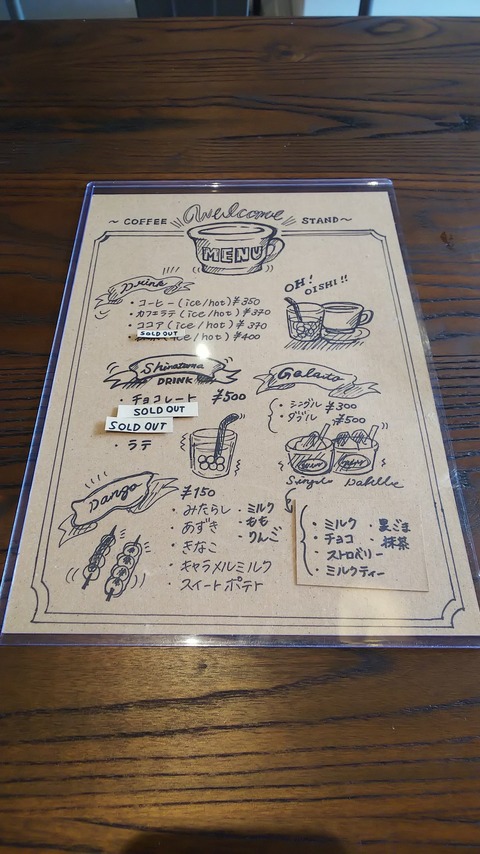 ~ COFFEE Welcome STAND ~
MENU
Drink
・コーヒー(ice/hot) ¥350
・カフェラテ(ice/hot) ¥370
・ココア(ice/hot) ¥370
SOLD OUT (ice/hot) ¥400
OH!
OISHI!!
Shiratama
DRINK
・チョコレート ¥500
SOLD OUT
SOLD OUT
ラテ
Gelato
・シングル ¥300
・ダブル ¥500
Single Dabllle
・ミルク ・黒ごま
・チョコ ・抹茶
・ストロベリー
・ミルクティー
Dango
¥150
・みたらし ・ミルク
・あずき ・もも
・きなこ ・りんご
・キャラメルミルク
・スイートポテト